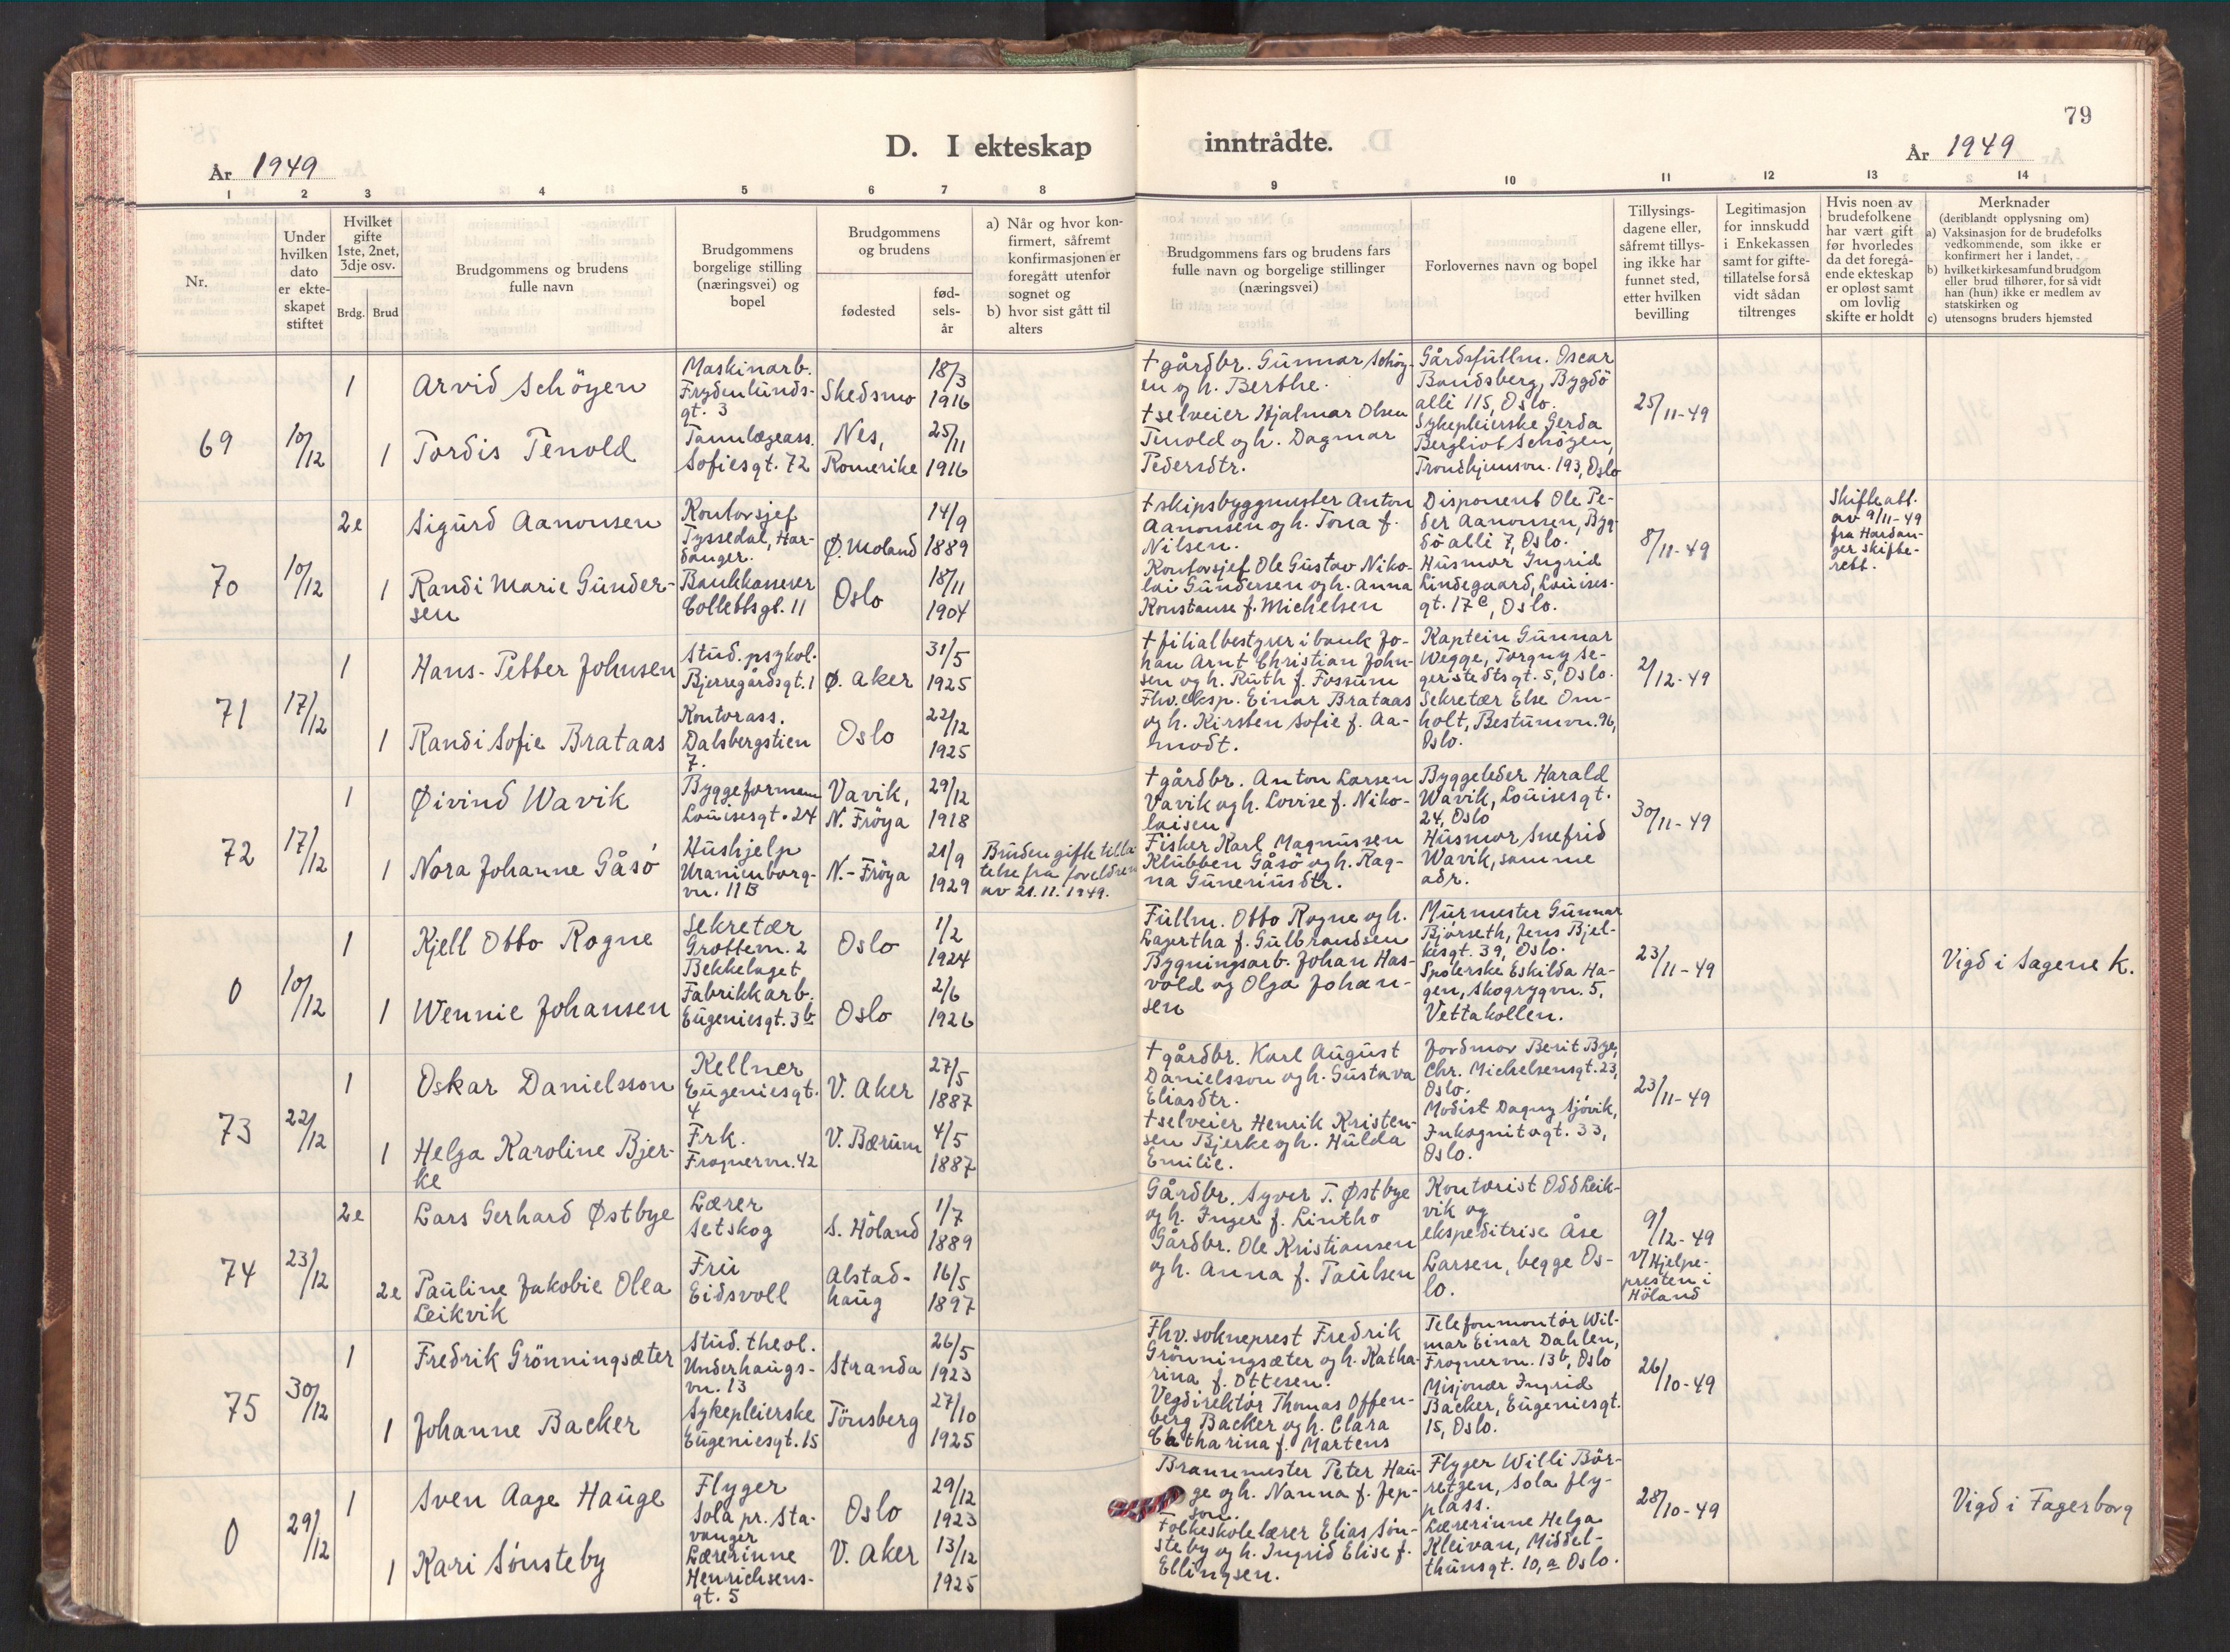 79
D. I ekteskap inntrådte.
År 1949
År 1949
1 2 3 4 5 6 7 8 9 10 11 12 13 14
Nr.
Under
hvilken
dato
er ekte-
skapet
stiftet
Hvilket
gifte
1ste, 2net,
3dje osv.
Brdg. Brud
Brudgommens og brudens
fulle navn
Brudgommens
borgelige stilling
(næringsvei) og
bopel
Brudgommens
og brudens
fødested
fød-
sels-
år
a) Når og hvor kon-
firmert, såfremt
konfirmasjonen er
foregått utenfor
sognet og
b) hvor sist gått til
alters
Brudgommens fars og brudens fars
fulle navn og borgelige stillinger
(næringsvei)
Forlovernes navn og bopel
Tillysings-
dagene eller,
såfremt tillys-
ing ikke har
funnet sted,
etter hvilken
bevilling
Legitimasjon
for innskudd
i Enkekassen
samt for gifte-
tillatelse for så
vidt sådan
tiltrenges
Hvis noen av
brudefolkene
har vært gift
før hvorledes
da det foregå-
ende ekteskap
er opløst samt
om lovlig
skifte er holdt
Merknader
(deriblandt opplysning om)
a) Vaksinasjon for de brudefolks
vedkommende, som ikke er
konfirmert her i landet,
b) hvilket kirkesamfund brudgom
eller brud tilhører, for så vidt
han (hun) ikke er medlem av
statskirken og
c) utensogns bruders hjemsted
69
10/12
1
Arvid Schöyen
Maskinarb.
Frydenlunds-
gt. 3
Skedsmo
18/3
1916
1
Tordis Tenold
Tannlægeass.
Sofiesgt. 72
Nes,
Romerike
25/11
1916
† gårdbr. Gunnar Schöy-
en og h. Berthe.
† selveier Hjalmar Olsen
Tenold og h. Dagmar
Pedersdtr.
Gårdsfullm. Oscar
Bandsberg, Bygdö
alli 115, Oslo.
Sykepleierske Gerda
Bergliot Schöyen,
Trondhjemsvn. 193, Oslo
25/11-49
70
10/12
2e
Sigurd Aanonsen
Kontorsjef
Tyssedal, Har-
danger.
Ø. Moland
14/9
1889
1
Randi Marie Gunder-
sen
Bankkasserer
Collettsgt. 11
Oslo
18/11
1904
† skipsbyggmester Anton
Aanonsen og h. Tona f.
Nilsen.
Kontorsjef Ole Gustav Niko-
lai Gundersen og h. Anna
Konstanse f. Michelsen
Disponent Ole Pe-
der Aanonsen, Byg-
dö alli 7, Oslo.
Husmor Ingrid
Lindegaard, Louises-
gt. 17c, Oslo.
8/11-49
Skifteatt.
av 9/11-49
fra Hardan-
ger skifte-
rett.
71
17/12
1
Hans-Petter Johnsen
Stud. psykol.
Bjerregårdsgt. 1
Ø. Aker
31/5
1925
1
Randi Sofie Brataas
Kontorass.
Dalsbergstien
7.
Oslo
22/12
1925
† filialbestyrer i bank Jo-
han Arnt Christian John-
sen og h. Ruth f. Fossum
Fhv. eksp. Einar Brataas
og h. Kirsten Sofie f. Aa-
modt.
Kaptein Gunnar
Wegge, Torgny Se-
gerstedtsgt. 5, Oslo.
Sekretær Else Om-
holt, Bestumvn. 96,
Oslo.
2/12-49
72
17/12
1
Øivind Wavik
Byggeformann
Louisesgt. 24
Vavik,
N. Fröya
29/12
1918
1
Nora Johanne Gåsö
Hushjelp
Uranienborg-
vn. 11B
N.-Fröya
21/9
1929
Bruden gifte tilla-
telse fra foreldrene
av 21.11.1949.
† gårdbr. Anton Larsen
Vavik og h. Lovise f. Niko-
laisen
Fisker Karl Magnussen
Klubben Gåsö og h. Rag-
na Guneriusdtr.
Byggeleder Harald
Wavik, Louisesgt.
24, Oslo
Husmor Snefrid
Wavik, samme
adr.
30/11-49
0
10/12
1
Kjell Otto Rogne
Sekretær
Grottevn. 2
Bekkelaget
Oslo
1/2
1924
1
Wennie Johansen
Fabrikkarb.
Eugeniesgt. 3b
Oslo
2/6
1926
Fullm. Otto Rogne og h.
Lagertha f. Gulbrandsen
Bygningsarb. Johan Has-
vold og Olga Johan-
sen
Murmester Gunnar
Bjørseth, Jens Bjel-
kesgt. 39, Oslo.
Spolerske Eskilda Ha-
gen, Skogrygvn. 5,
Vettakollen.
23/11-49
Vigd i Sagene K.
73
22/12
1
Oskar Danielsson
Kellner
Eugeniesgt.
4
V. Aker
27/5
1887
1
Helga Karoline Bjer-
ke
Frk.
Frognervn. 42
V. Bærum
4/5
1887
† gårdbr. Karl August
Danielsson og h. Gustava
Eliasdtr.
† selveier Henrik Kristen-
sen Bjerke og h. Hulda
Emilie.
Jordmor Berit Bye,
Chr. Michelsensgt. 23,
Oslo.
Modist Dagny Sjövik,
Inkognitogt. 33,
Oslo.
23/11-49
74
23/12
2e
Lars Gerhard Østbye
Lærer
Setskog
S. Höland
1/7
1889
2e
Pauline Jakobie Olea
Leikvik
Fru
Eidsvoll
Alstad-
haug
16/5
1897
Gårdbr. Syver T. Østbye
og h. Inger f. Lintho
Gårdbr. Ole Kristiansen
og h. Anna f. Paulsen
Kontorist Odd Leik-
vik og
ekspeditrise Åse
Larsen, begge Os-
lo.
9/12-49
v/ Hjelpe-
presten i
Höland
75
30/12
1
Fredrik Grönningsæter
Stud. theol.
Underhaugs-
vn. 13
Stranda
26/5
1923
1
Johanne Backer
Sykepleierske
Eugeniesgt. 15
Tönsberg
27/10
1925
Fhv. sokneprest Fredrik
Grönningsæter og h. Katha-
rina f. Ottesen.
Vegdirektör Thomas Offen-
berg Backer og h. Clara
Catharina f. Martens
Telefonmontör Wil-
mar Einar Dahlen,
Frognervn. 13b, Oslo
Misjonær Ingrid
Backer, Eugeniesgt.
15, Oslo.
26/10-49
0
29/12
1
Sven Aage Hauge
Flyger
Sola pr. Sta-
vanger
Oslo
29/12
1923
1
Kari Sønsteby
Lærerinne
Henrichsens-
gt. 5
V. Aker
13/12
1925
Brannmester Peter Hau-
ge og h. Nanna f. Jep-
son.
Folkeskolelærer Elias Søn-
steby og h. Ingrid Elise f.
Ellingsen.
Flyger Willi Bör-
retzen, Sola fly-
plass.
Lærerinne Helga
Kleivan, Middel-
thunsgt. 10, a Oslo.
28/10-49
Vigd i Fagerborg